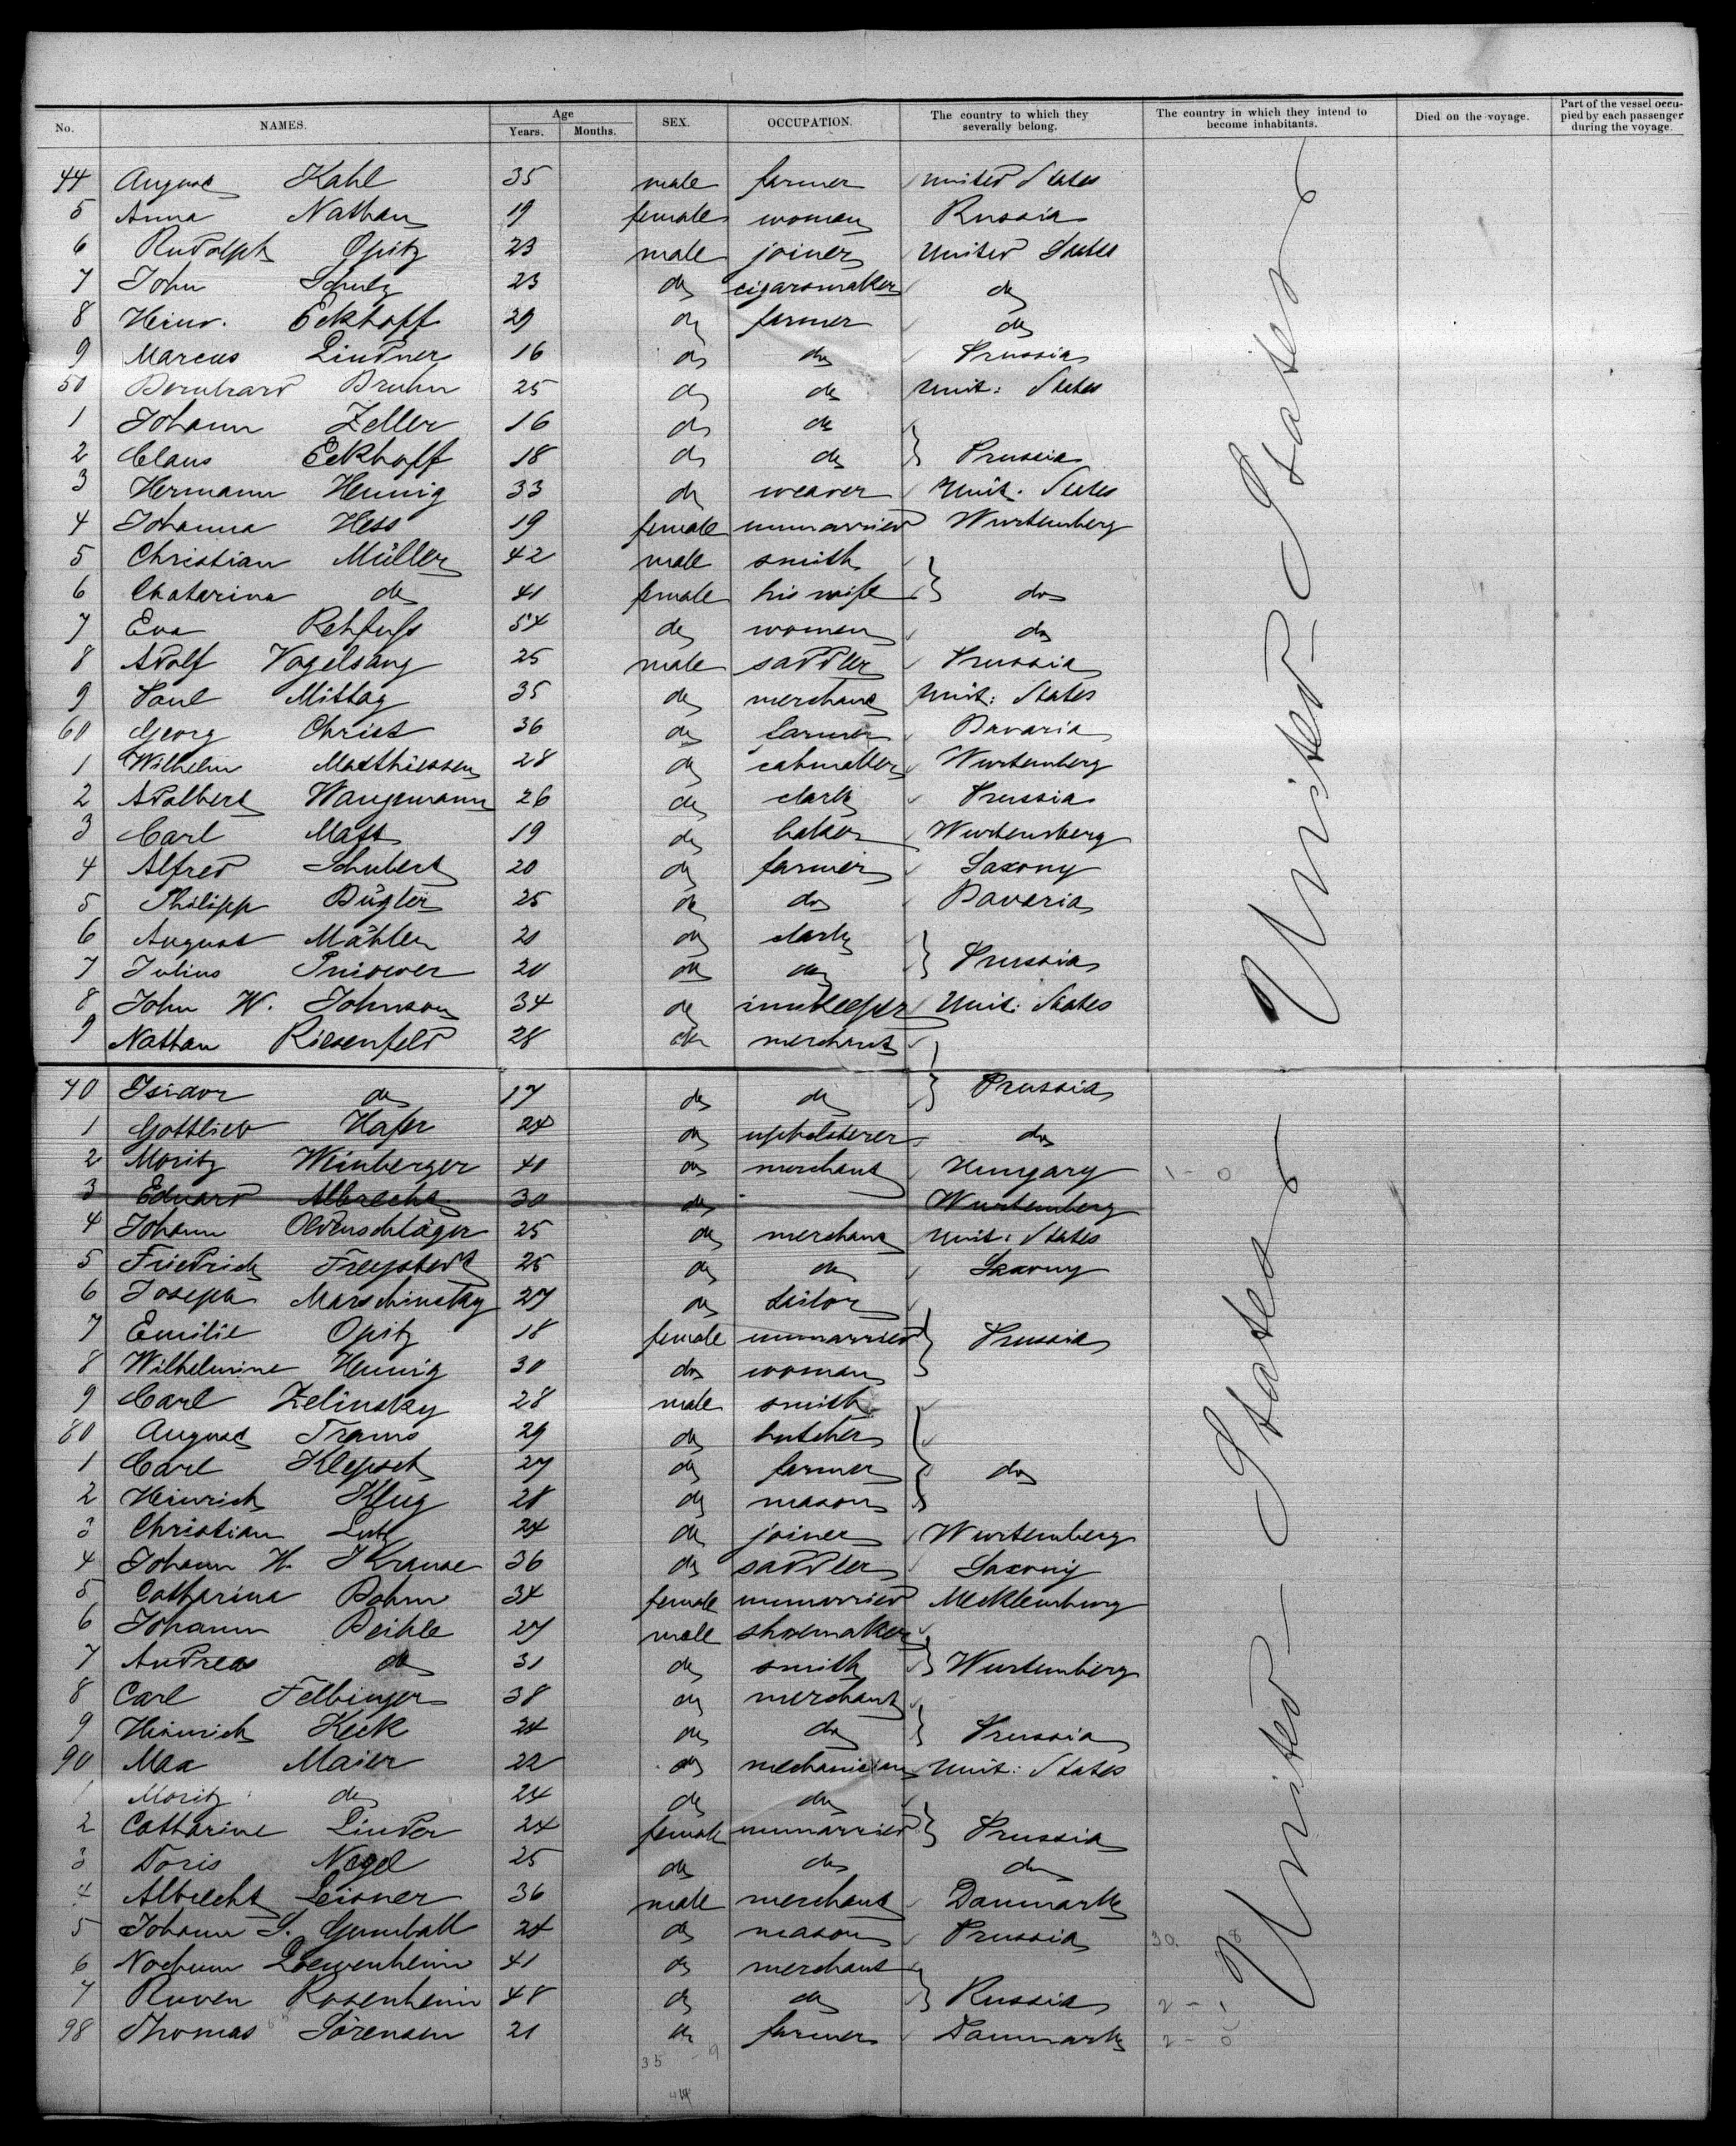 No. NAMES. Age Years. Months. SEX. OCCUPATION. The country to which they severally belong. The country in which they intend to become inhabitants. Died on the voyage. Part of the vessel occupied by each passenger during the voyage.
44 August Kahl 35 male farmer United States
5 Anna Nathan 19 female woman Russia
6 Rudolph Opitz 23 male joiner United States
7 John Schulz 23 do cigarsmaker do
8 Heinr. Eckhoff 29 do farmer do
9 Marcus Lindner 16 do do Prussia
50 Bernhard Bruhn 25 do do Unit: States
1 Johann Zeller 16 do do
2 Claus Eckhoff 18 do do } Prussia
3 Hermann Hennig 33 do weaver Unit. States
4 Johanna Hess 19 female unmarried Wurtemberg
5 Christian Müller 42 male smith
6 Chatarina do 41 female his wife } do
7 Eva Rehfuss 54 do woman do
8 Adolf Vogelsang 25 male saddler Prussia
9 Paul Mittag 35 do merchant Unit: States
60 Georg Christ 36 do farmer Bavaria
1 Wilhelm Matthiessen 28 do cabmaker Wurtemberg
2 Adalbert Wangemann 26 do clark Prussia
3 Carl Mast 19 do baker Wurtemberg
4 Alfred Schubert 20 do farmer Saxony
5 Philipp Bügler 25 do do Bavaria
6 August Mähler 21 do clark
7 Julius 20 do do } Prussia
8 John W. Johnson 34 do innkeeper Unit: States
9 Nathan Riesenfeld 28 do merchant
70 Isidor do 17 do do } Prussia
1 Gottlieb Hafer 24 do upholsterer do
2 Moritz Weinberger 40 do merchant Hungary 1 - 0
3 Eduard Albrecht 30 do Wurtemberg
4 Johann Oldenschläger 25 do merchant Unit: States
5 Friedrich Freystedt 25 do do Saxony
6 Joseph Marschinsky 27 do tailor
7 Emilie Opitz 18 female unmarried } Prussia
8 Wilhelmine Hennig 30 do woman
9 Carl Zelinsky 28 male smith
80 August Trams 29 do butcher
1 Carl Klepsch 27 do farmer } do
2 Heinrich Klug 28 do mason
3 Christian 24 do joiner Wurtemberg
4 Johann H. Krause 36 do saddler Saxony
5 Catharina Bohm 34 female unmarried Mecklemburg
6 Johann Beihle 27 male shoemaker
7 Andreas do 31 do smith } Wurtemberg
8 Carl Felbinger 38 do merchant
9 Heinrich Keck 24 do do } Prussia
90 Max Maier 22 do mechanician Unit: States
1 Moritz do 24 do do
2 Catharine Linder 24 female unmarried } Prussia
3 Doris Nagel 25 do do do
4 Albrecht Leisner 36 male merchant Danmark
5 Johann G. Gumball 24 do mason Prussia 30 8
6 Nochum Loewenheim 41 do merchant
7 Ruven Rosenheim 48 do do } Russia 2 - 1
98 Thomas Sörensen 21 do farmer Danmark 2 - 0
35 - 9
44
United States
United States